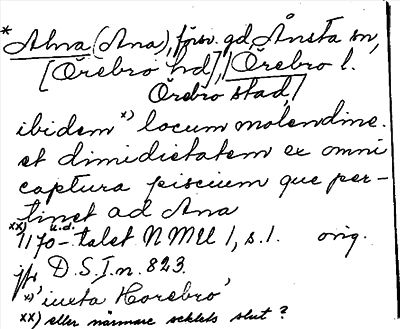 * Alna (Ana), försv. gd, Ånsta sn,
[Örebro hd], Örebro l.
Örebro stad,]
ibidem x) locum molendine.
et dimidietatem ex omni
captura piscium que per-
tinet ad Ana
xx) u.d.
1170-talet NMU 1, s.1. orig.
jfr D.S. I n. 823.
x) 'iuxta Horebro'
xx) eller närmare seklets slut?